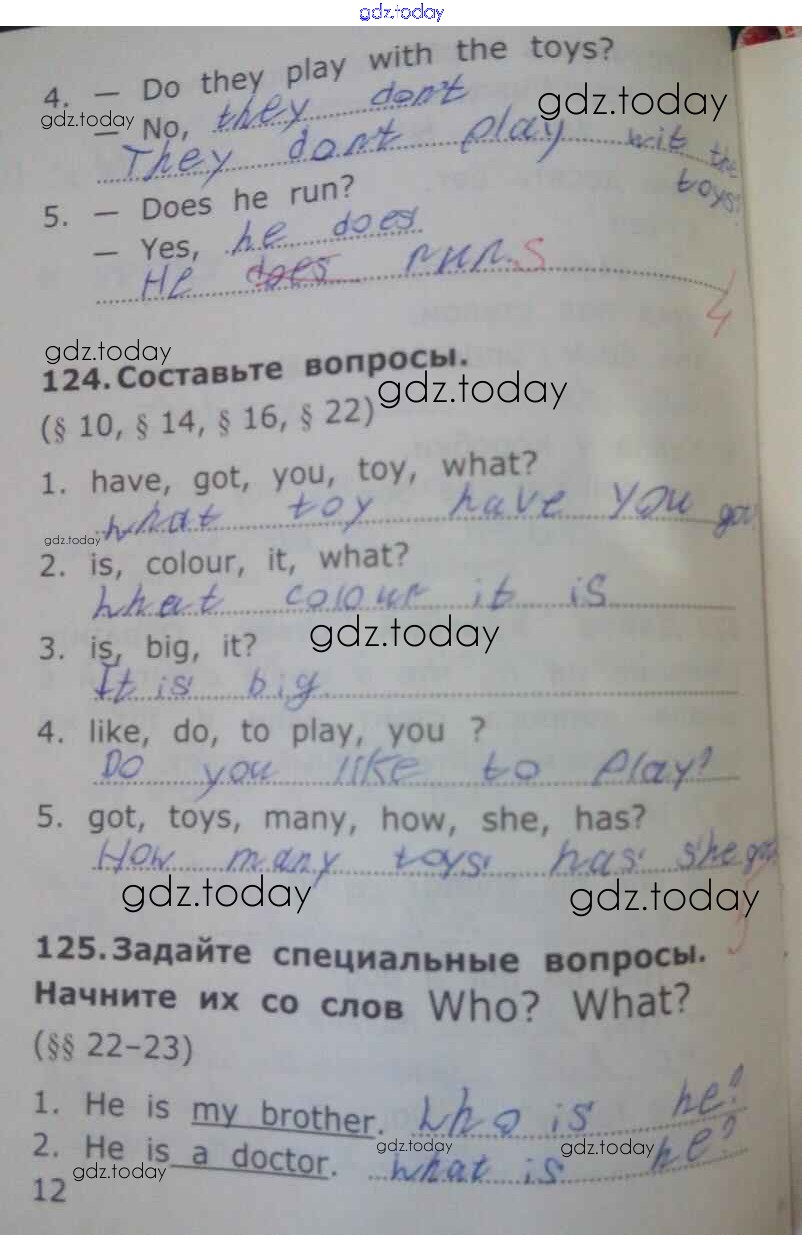 gdz.today
4. — Do they play with the toys?
gdz.today
gdz.today
— No, they don't
They dont play wit the
toys?
5. — Does he run?
— Yes, he does
He does run.s
4
gdz.today
124. Составьте вопросы.
gdz.today
(§ 10, § 14, § 16, § 22)
1. have, got, you, toy, what?
what toy have you got
gdz.today
2. is, colour, it, what?
what colour it is
gdz.today
3. is, big, it?
It is big
4. like, do, to play, you ?
Do you like to play?
5. got, toys, many, how, she, has?
How many toys has she got
gdz.today
gdz.today
125. Задайте специальные вопросы.
Начните их со слов Who? What?
(§§ 22–23)
1. He is my brother. Who is he?
2. He is a doctor. what is he?
gdz.today
gdz.today
gdz.today
12